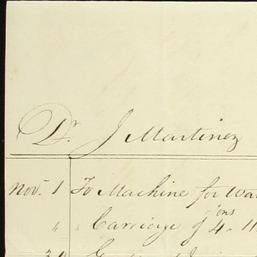 Dr. J Martinez
Nov. 1 To Machine for Wa
" " Carriage of 4 - 11
tons